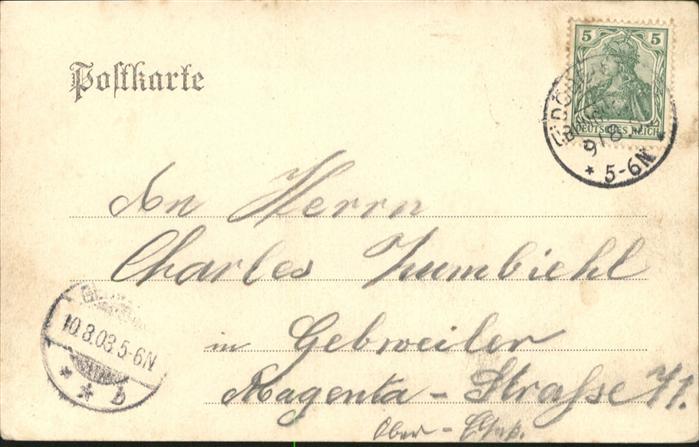 Postkarte
5 5
DEUTSCHES REICH
9/8
* 5-6N *
An Herrn
Charles Zumbiehl
in Gebweiler
Magenta-Strasse 71.
Ober-Els.
10.8.03.5-6N
* * b